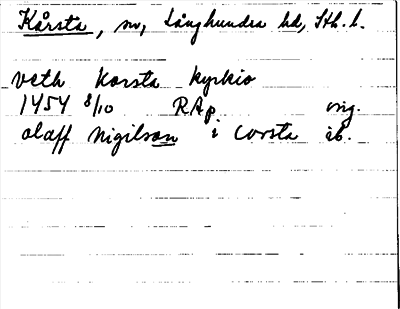 Kårsta, sn, Långhundra hd, Sth. l.
veth Karsta kyrkio
1454 8/10 RAp orig.
olaff Nigilson i Corsta ib.